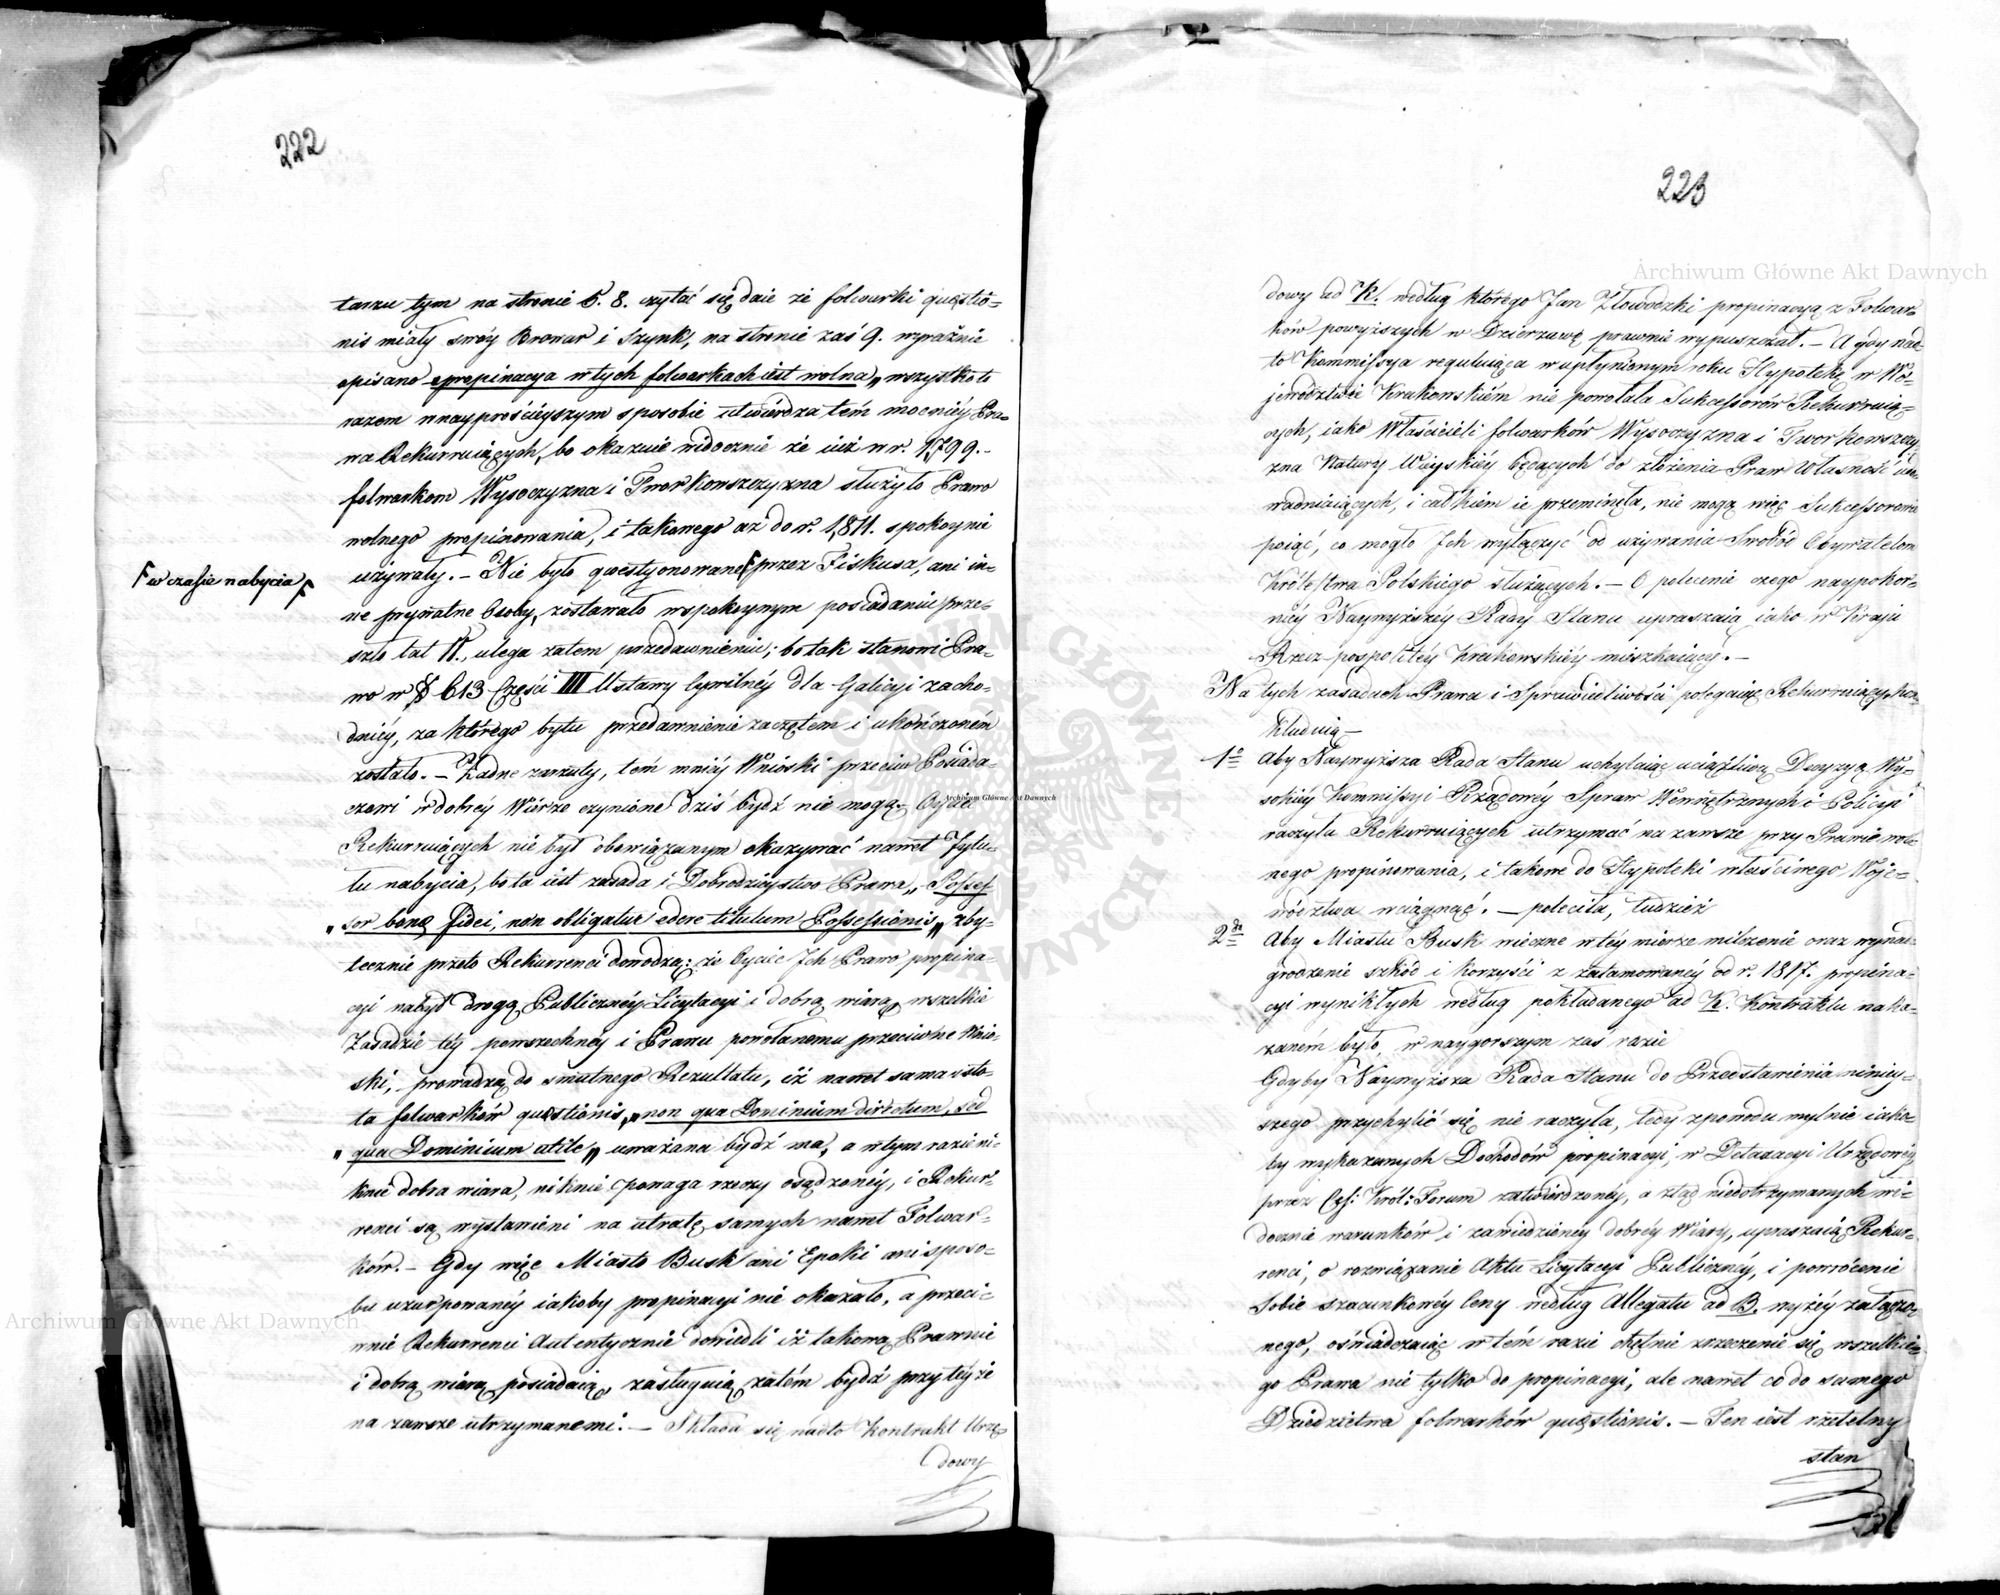 222
tarzu tym na stronie 5. 8. czytać się daie że folwarki quęstio=
nis miały swóy Browar i Szynk, na stronie zaś 9. wyraźnie
opisano propinacya w tych folwarkach iest wolna„ wszystko to
razem w nayprościéyszym sposobie utwierdza tém mocniéy Pra=
wa Rekurruiących, bo okazuie widocznie że iuż w r. 1,799.-
folwarkom Wysoczyzna i Tworkowszczyzna służyło Prawo
wolnego propinowania, i takowego aż do r. 1,811. spokoynie
używały. - Nie było qwestyonowane F przez Fiskusa, ani in=
F w czasie nabycia F
ne prywatne Osoby, zostawało w spokoynym posiadaniu prze=
szło lat 11., ulega zatem przedawnieniu; bo tak stanowi Pra=
wo w § 613 Części III Ustawy Cywilnéy dla Galicyi zacho=
dniéy, za którego bytu przedawnienie zaczętem i ukończoném
zostało. - Żadne zarzuty, tém mniéy Wnioski przeciw Posiada=
czowi w dobréy Wierze czynione dziś bydź nie mogą. Oyciec
Rekurruiących nie był obowiązanym okazywać nawet Tytu=
łu nabycia, bo ta iest zasada i Dobrodzieystwo Prawa„ Possef
„sor bonę fidei, non obligatur edere titulum Possefsionis„ zby=
tecznie przeto Rekurrenci dowodzą: że Oyciec Ich Prawo propina=
cyi nabył drogą Publicznéy Licytacyi i dobrą wiarą, wszelkie
Zasadzie téy powszechnéy i Prawu powołanemu przeciwne Wnio=
ski, prowadzą do smutnego Rezultatu, iż nawet sama isto=
ta folwarków quęstionis, „non qua Dominium directum, sed
„qua Dominium utile„ uważana bydź ma, a w tym razie ni=
knie dobra wiara, niknie powaga rzeczy osądzonéy, i Rekur=
renci są wystawieni na utratę samych nawet Folwar=
ków. - Gdy więc Miasto Busk ani Epoki ani sposo=
bu uzurpowanéy iakoby propinacyi nie okazało, a przeci=
wnie Rekurrenci Autentycznie dowiedli iż takową Prawnie
i dobrą wiarą posiadaią, zasługuią zatém bydź przy téyże
na zawsze utrzymanemi. - Składa się nadto Kontrakt Urzę
dowy
223
dowy ad K. według którego Jan Złowodzki propinacyą z Folwar=
ków powyższych w Dzierżawę prawnie wypuszczał. - A gdy nad=
to Kommifsya reguluiąca w upłynionym roku Hypotekę w Wo=
jewództwie Krakowskiém nie powołała Sukcefsorów Rekurruią=
cych, iako Właścicieli folwarków Wysoczyzna i Tworkowszczy=
zna Natury Wieyskiéy będących do złożenia Praw Własność uza=
wadniaiących, i całkiem ie przeminęła, nie mogą więc Sukcefsorowie
poiąć, co mogło Ich wyłączyć od używania Swobód Obywatelom
Królestwa Polskiego służących. - O polecenie czego naypokor=
niéy Naywyższéy Rady Stanu upraszaią iako w Kraju
Rzeczpospolitéy Krakowskiéy mieszkaiący. -
Na tych zasadach Prawa i Sprawiedliwości polegaiąc Rekurruiący kon=
kluduią -
1o Aby Naywyższa Rada Stanu uchylaiąc uciążliwą Decyzyą Wy=
sokiéy Kommifsyi Rządowéy Spraw Wewnętrznych i Policyi
raczyła Rekurruiących utrzymać na zawsze przy Prawie wol=
nego propinowania, i takowe do Hypoteki właściwego Woje=
wództwa wciągnąć. - poleciła, tudzież
2do Aby Miastu Busk wieczne w téy mierze milczenie oraz wynad=
grodzenie szkód i korzyści z zatamowanéy od r. 1817. propina=
cyi wynikłych według pokładanego ad K. Kontraktu naka=
zaném było, w naygorszym zaś razie
Gdyby Naywyższa Rada Stanu do Przedstawienia niniey=
szego przychylić się nie raczyła, tedy z powodu mylnie iako=
by wykazanych Dochodów propinacyi, w Detaxacyi Urzędowéy
przez Ces: Król: Forum zatwierdzonéy, a ztąd niedotrzymanych wi=
docznie warunków i zawiedzionéy dobréy Wiary, upraszaią Rekur=
renci, o rozwiązanie Aktu Licytacyi Publicznéy, i powrócenie
Sobie szacunkowéy Ceny według Allegatu ad B. wyżéy załączo=
nego, oświadczaiąc w tém razie chętnie zrzeczenie się wszelkie=
go Prawa nie tylko do propinacyi, ale nawet co do samego
Dziedzictwa folwarków quęstionis. - Ten iest rzetelny
stan
Archiwum Główne Akt Dawnych
Archiwum Główne Akt Dawnych
Archiwum Główne Akt Dawnych
ARCHIWUM GŁÓWNE AKT DAWNYCH